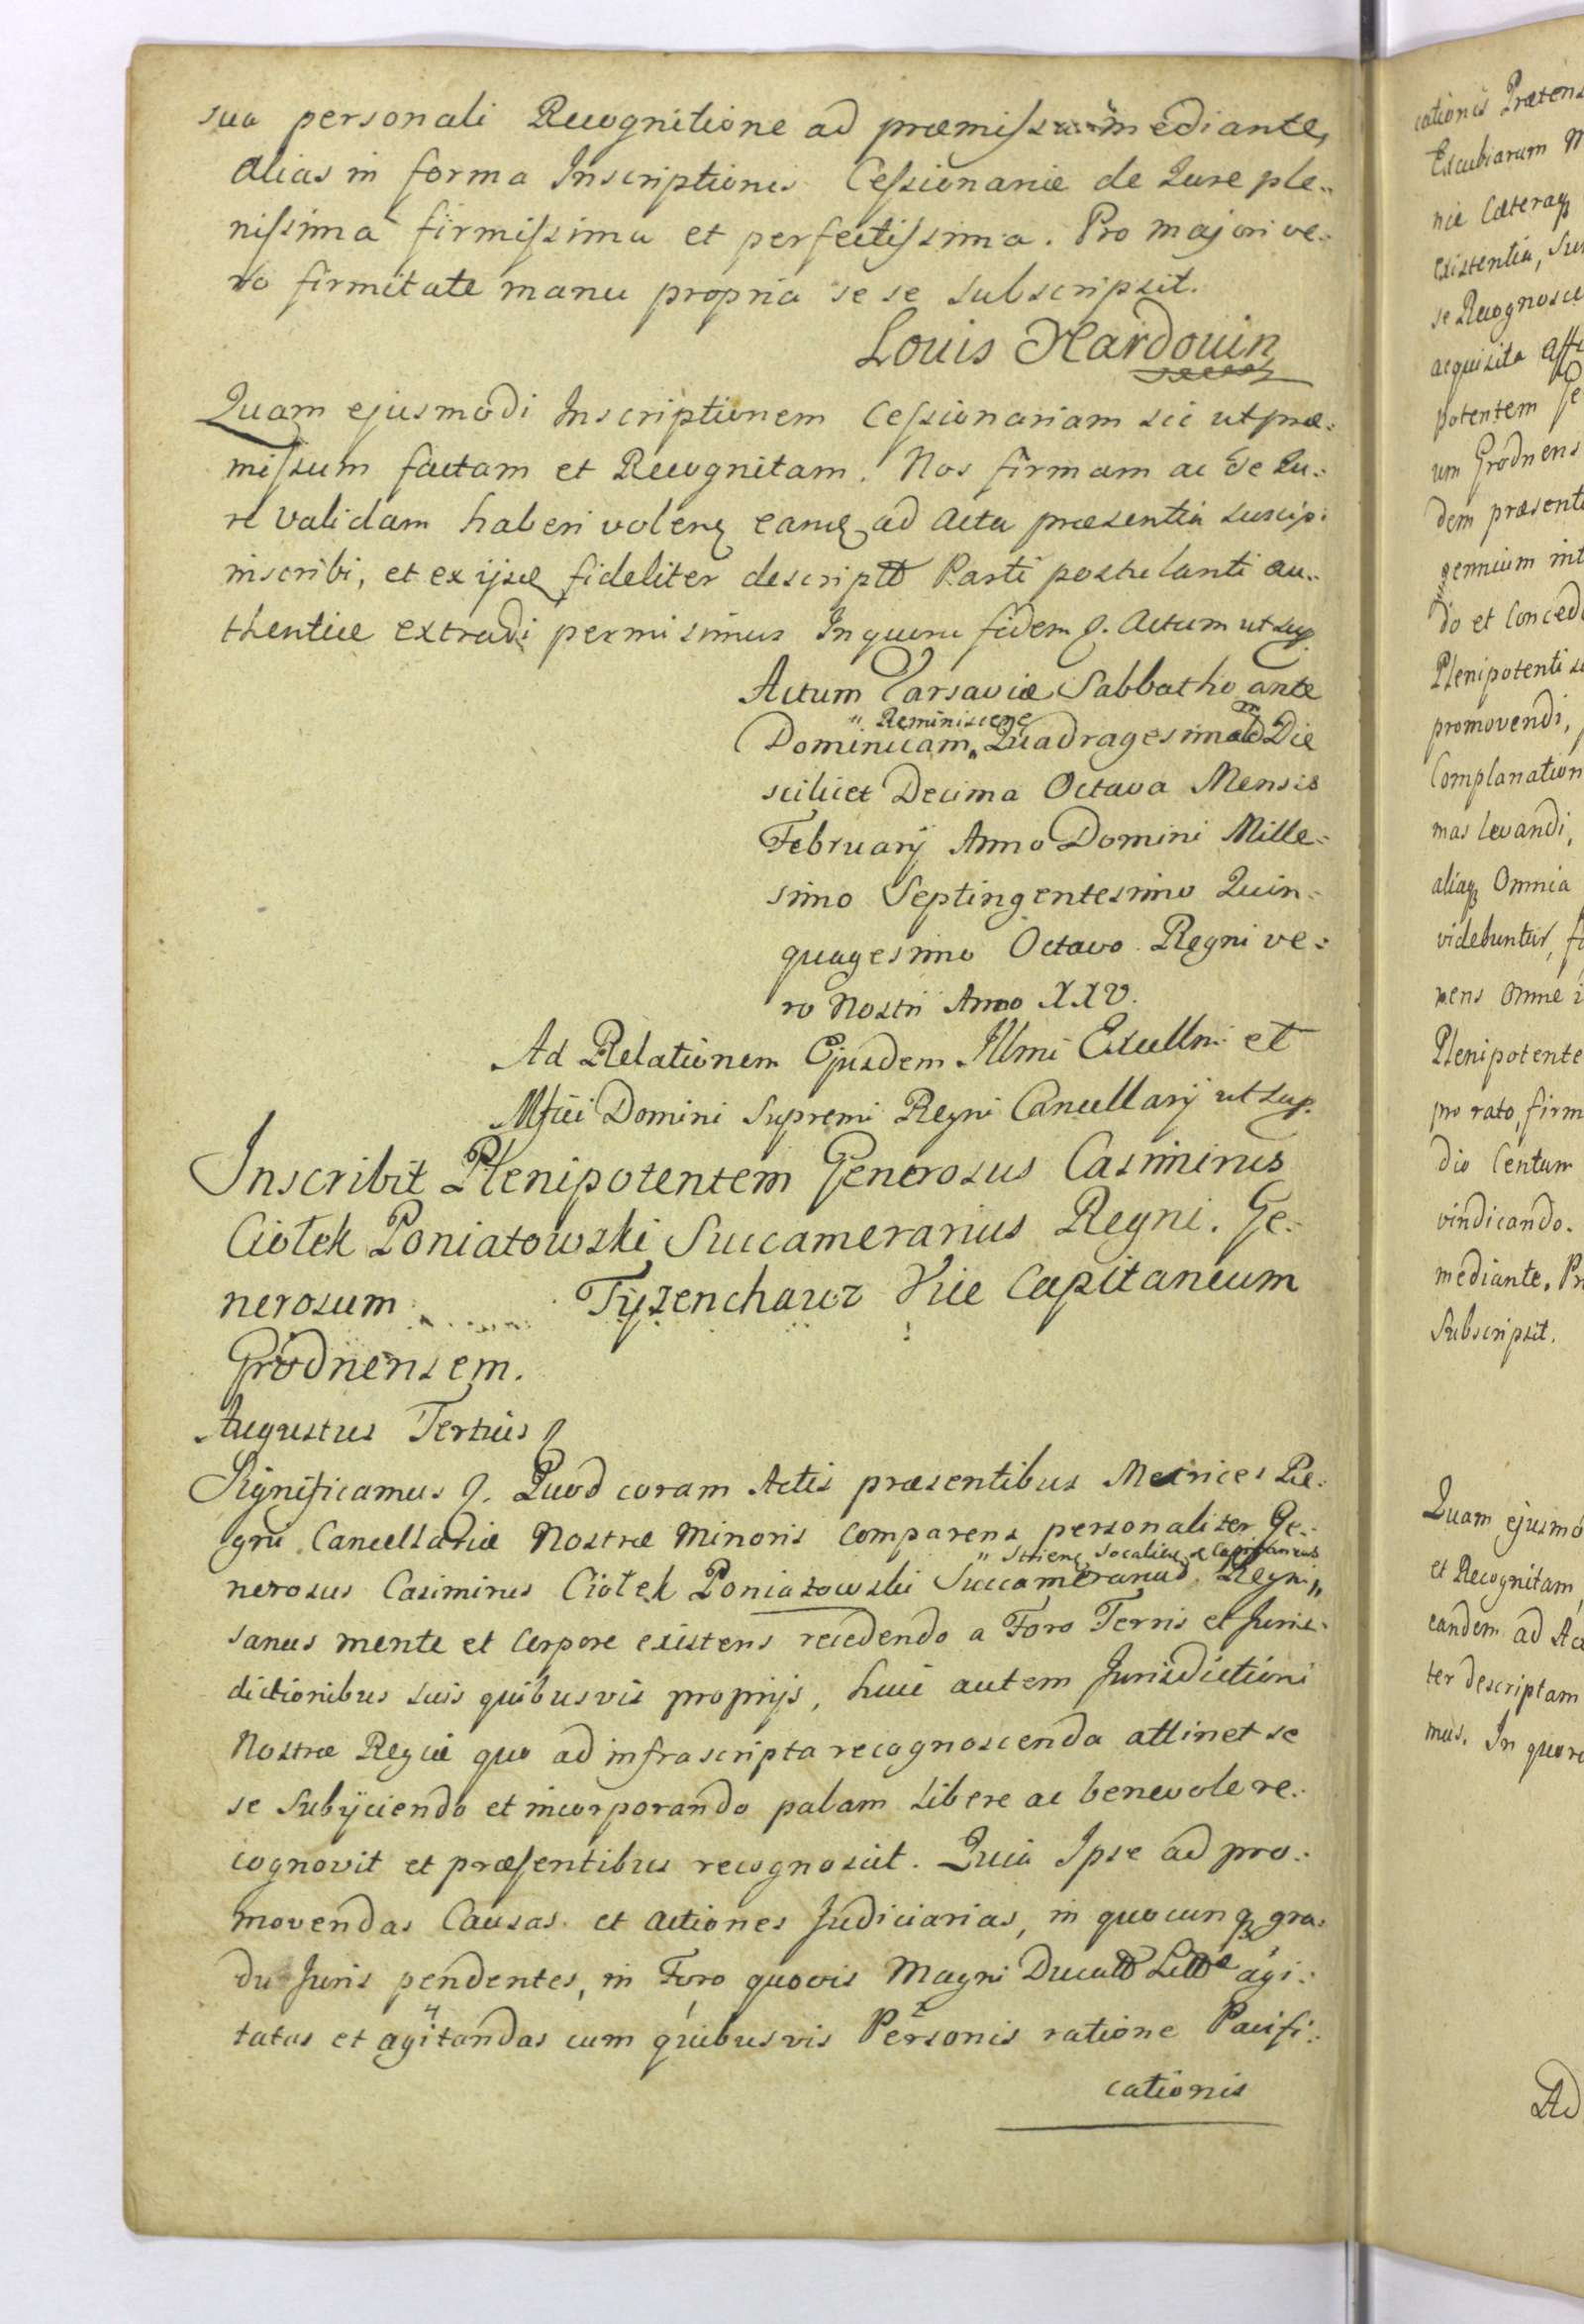 sua personali Recognitione ad præmissa mediante,
alias in forma Inscriptionis Cessionariæ de Jure ple=
nissima firmissima et perfectissima. Pro majori ve=
ro firmitate manu propria se se subscripsit.
Louis Hardouin
Quam ejusmodi Inscriptionem Cessionariam sic ut præ=
missum factam et Recognitam. Nos firmam ac de Ju=
re validam haberi volenq eamq ad Acta præsentia suscipi
inscribi, et ex ijsq fideliter descriptt Parti postulanti au=
thentice extradi permisimus In quoru fidem q. Actum ut sup.
Actum Varsaviæ Sabbatho ante
Dominicam „Reminiscere„ Quadragesimalem Die
scilicet Decima Octava Mensis
Februarij Anno Domini Mille=
simo Septingentesimo Quin=
quagesimo Octavo Regni ve=
ro Nostri Anno XXV.
Ad Relationem Ejusdem Illmi Excellmi et
Mfici Domini Supremi Regni Cancellarij ut sup.
Inscribit Plenipotentem Generosus Casimirus
Ciołek Poniatowski Succamerarius Regni. Ge=
nerosum ........ Tyzenchauz Vice Capitaneum
Grodnensem.
Augustus Tertius q
Significamus q. Quod coram Actis præsentibus Metrices Re=
gni Cancellariæ Nostræ Minoris comparens personaliter Ge=
nerosus Casimirus Ciołek Poniatowski Succamerarius Regni „
sanus mente et corpore existens recedendo a Foro Terris et Juris=
dictionibus suis quibusvis proprijs, huic autem Jurisdictioni
Nostræ Regiæ quo ad infrascripta recognoscenda attinet se
se subijciendo et incorporando palam libere ac benevole re=
cognovit et præsentibus recognoscit. Quia Ipse ad pro=
movendas Causas et actiones Judiciarias, in quocunq gra=
du Juris pendentes, in Foro quovis Magni Ducatt Littæ agi=
tatas et agitandas cum quibusvis Personis ratione Pacifi=
cationis
cationis Prætens
Excubiarum M
niæ Cæteraq
existentia, Su
se Recognosce
acquisita Affe
potentem Ge
um Grodnens
dem præsente
gennium int
do et Conced
Plenipotenti su
promovendi,
Complanation
mas levandi,
aliaq Omnia
videbuntur, f
nens Omne i
Plenipotente
pro rato, firm
dio Centum
vindicando.
mediante. Pr
Subscripsit.
Quam ejusmo
et Recognitam
eandem ad Ac
ter descriptam
mus. In quoru
Ad